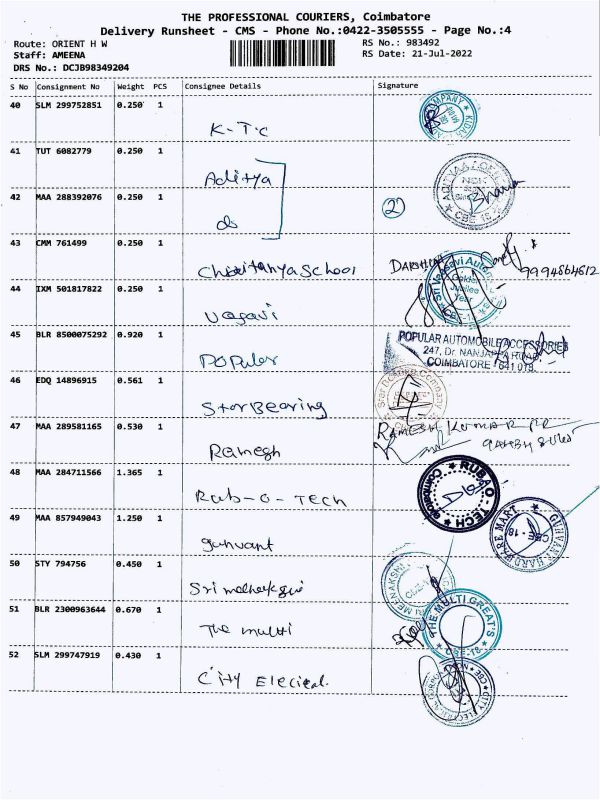 THE PROFESSIONAL COURIERS, Coimbatore
Delivery Runsheet - CMS - Phone No.:0422-3505555 - Page No.:4
Route: ORIENT H W
RS No.: 983492
Staff: AMEENA
RS Date: 21-Jul-2022
DRS No.: DCJB98349204
S No Consignment No Weight PCS Consignee Details Signature
40 SLM 299752851 0.250 1
K-TC
COMPANY
41 TUT 6082779 0.250 1
Aditya
42 MAA 288392076 0.250 1
do
2
43 CMM 761499 0.250 1
Chaitanya School
9994864612
44 IXM 501817822 0.250 1
Vagavi
Golden Jubilee Year
45 BLR 8500075292 0.920 1
Populer
POPULAR AUTOMOBILE ACCESSORIES
247, Dr. NANJAPPA ROAD,
COIMBATORE - 641 018.
46 EDQ 14896915 0.561 1
Star Bearing
47 MAA 289581165 0.530 1
Ramesh
RAMESH KUMAR
48 MAA 284711566 1.365 1
Rub-O-Tech
RUBAO-TECH
49 MAA 857949043 1.250 1
gunvant
GUNVANT HARDWARE MART
CBE - 18
50 STY 794756 0.450 1
51 BLR 2300963644 0.670 1
The multi
THE MULTI GREAT'S
CBE-18
52 SLM 299747919 0.430 1
City Elecical.
CITY ELECTRICAL CORPORATION
CBE